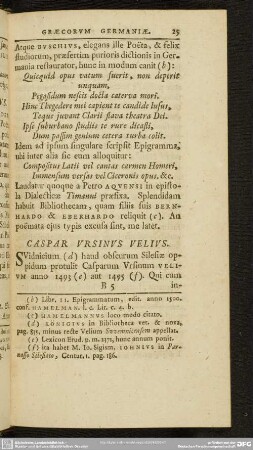 GRÆCORVM GERMANIÆ. 25
Atque BVSCHIVS, elegans ille Poëta, & felix
studiorum, præsertim purioris dictionis in Ger-
mania restaurator, hunc in modum canit (b):
Quicquid opus vatum fuerit, non deperit
unquam,
Pegasidum nescit docta caterva mori.
Hinc Thegedere mei capient te candide lusus,
Teque juvant Clarii flava theatra Dei.
Ipse suburbano studiis te rure dicasti,
Dum passim genium cetera turba colit.
Idem ad ipsum singulare scripsit Epigramma,
ubi inter alia sic eum alloquitur:
Compositus Latii vel cantas carmen Homeri,
Immensum versas vel Ciceronis opus, &c.
Laudatur quoque a Petro AQVENSI in episto-
la Dialecticæ Timanni præfixa. Splendidam
habuit Bibliothecam, quam filiis suis BERN-
HARDO & EBERHARDO reliquit (c). An
poëmata ejus typis excusa sint, me latet.
CASPAR VRSINVS VELIVS.
SVidnicium (d) haud obscurum Silesiæ op-
pidum protulit Casparum Vrsinum VELI-
VM anno 1493 (e) aut 1495 (f). Qui cum
B 5 in-
(b) Libr. II. Epigrammatum, edit. anno 1500.
conf. HAMELMAN. l. d. Lit. C. 2. b.
(c) HAMELMANNVS loco modo citato.
(d) KÖNIGIVS in Bibliotheca vet. & nova,
pag. 835. minus recte Velium Suemnicensem appellat.
(e) Lexicon Erud. p. m. 2371, hunc annum ponit.
(f) ita habet M. Io. Sigism. IOHNIVS in Par-
nasso Silesiaco, Centur. I. pag. 186.